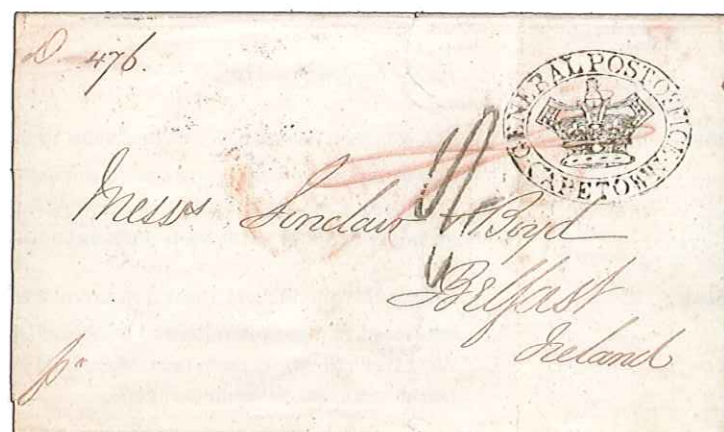 476.
GENERAL POST OFFICE
CAPE TOWN
Messrs Sinclair & Boyd
Belfast
Ireland